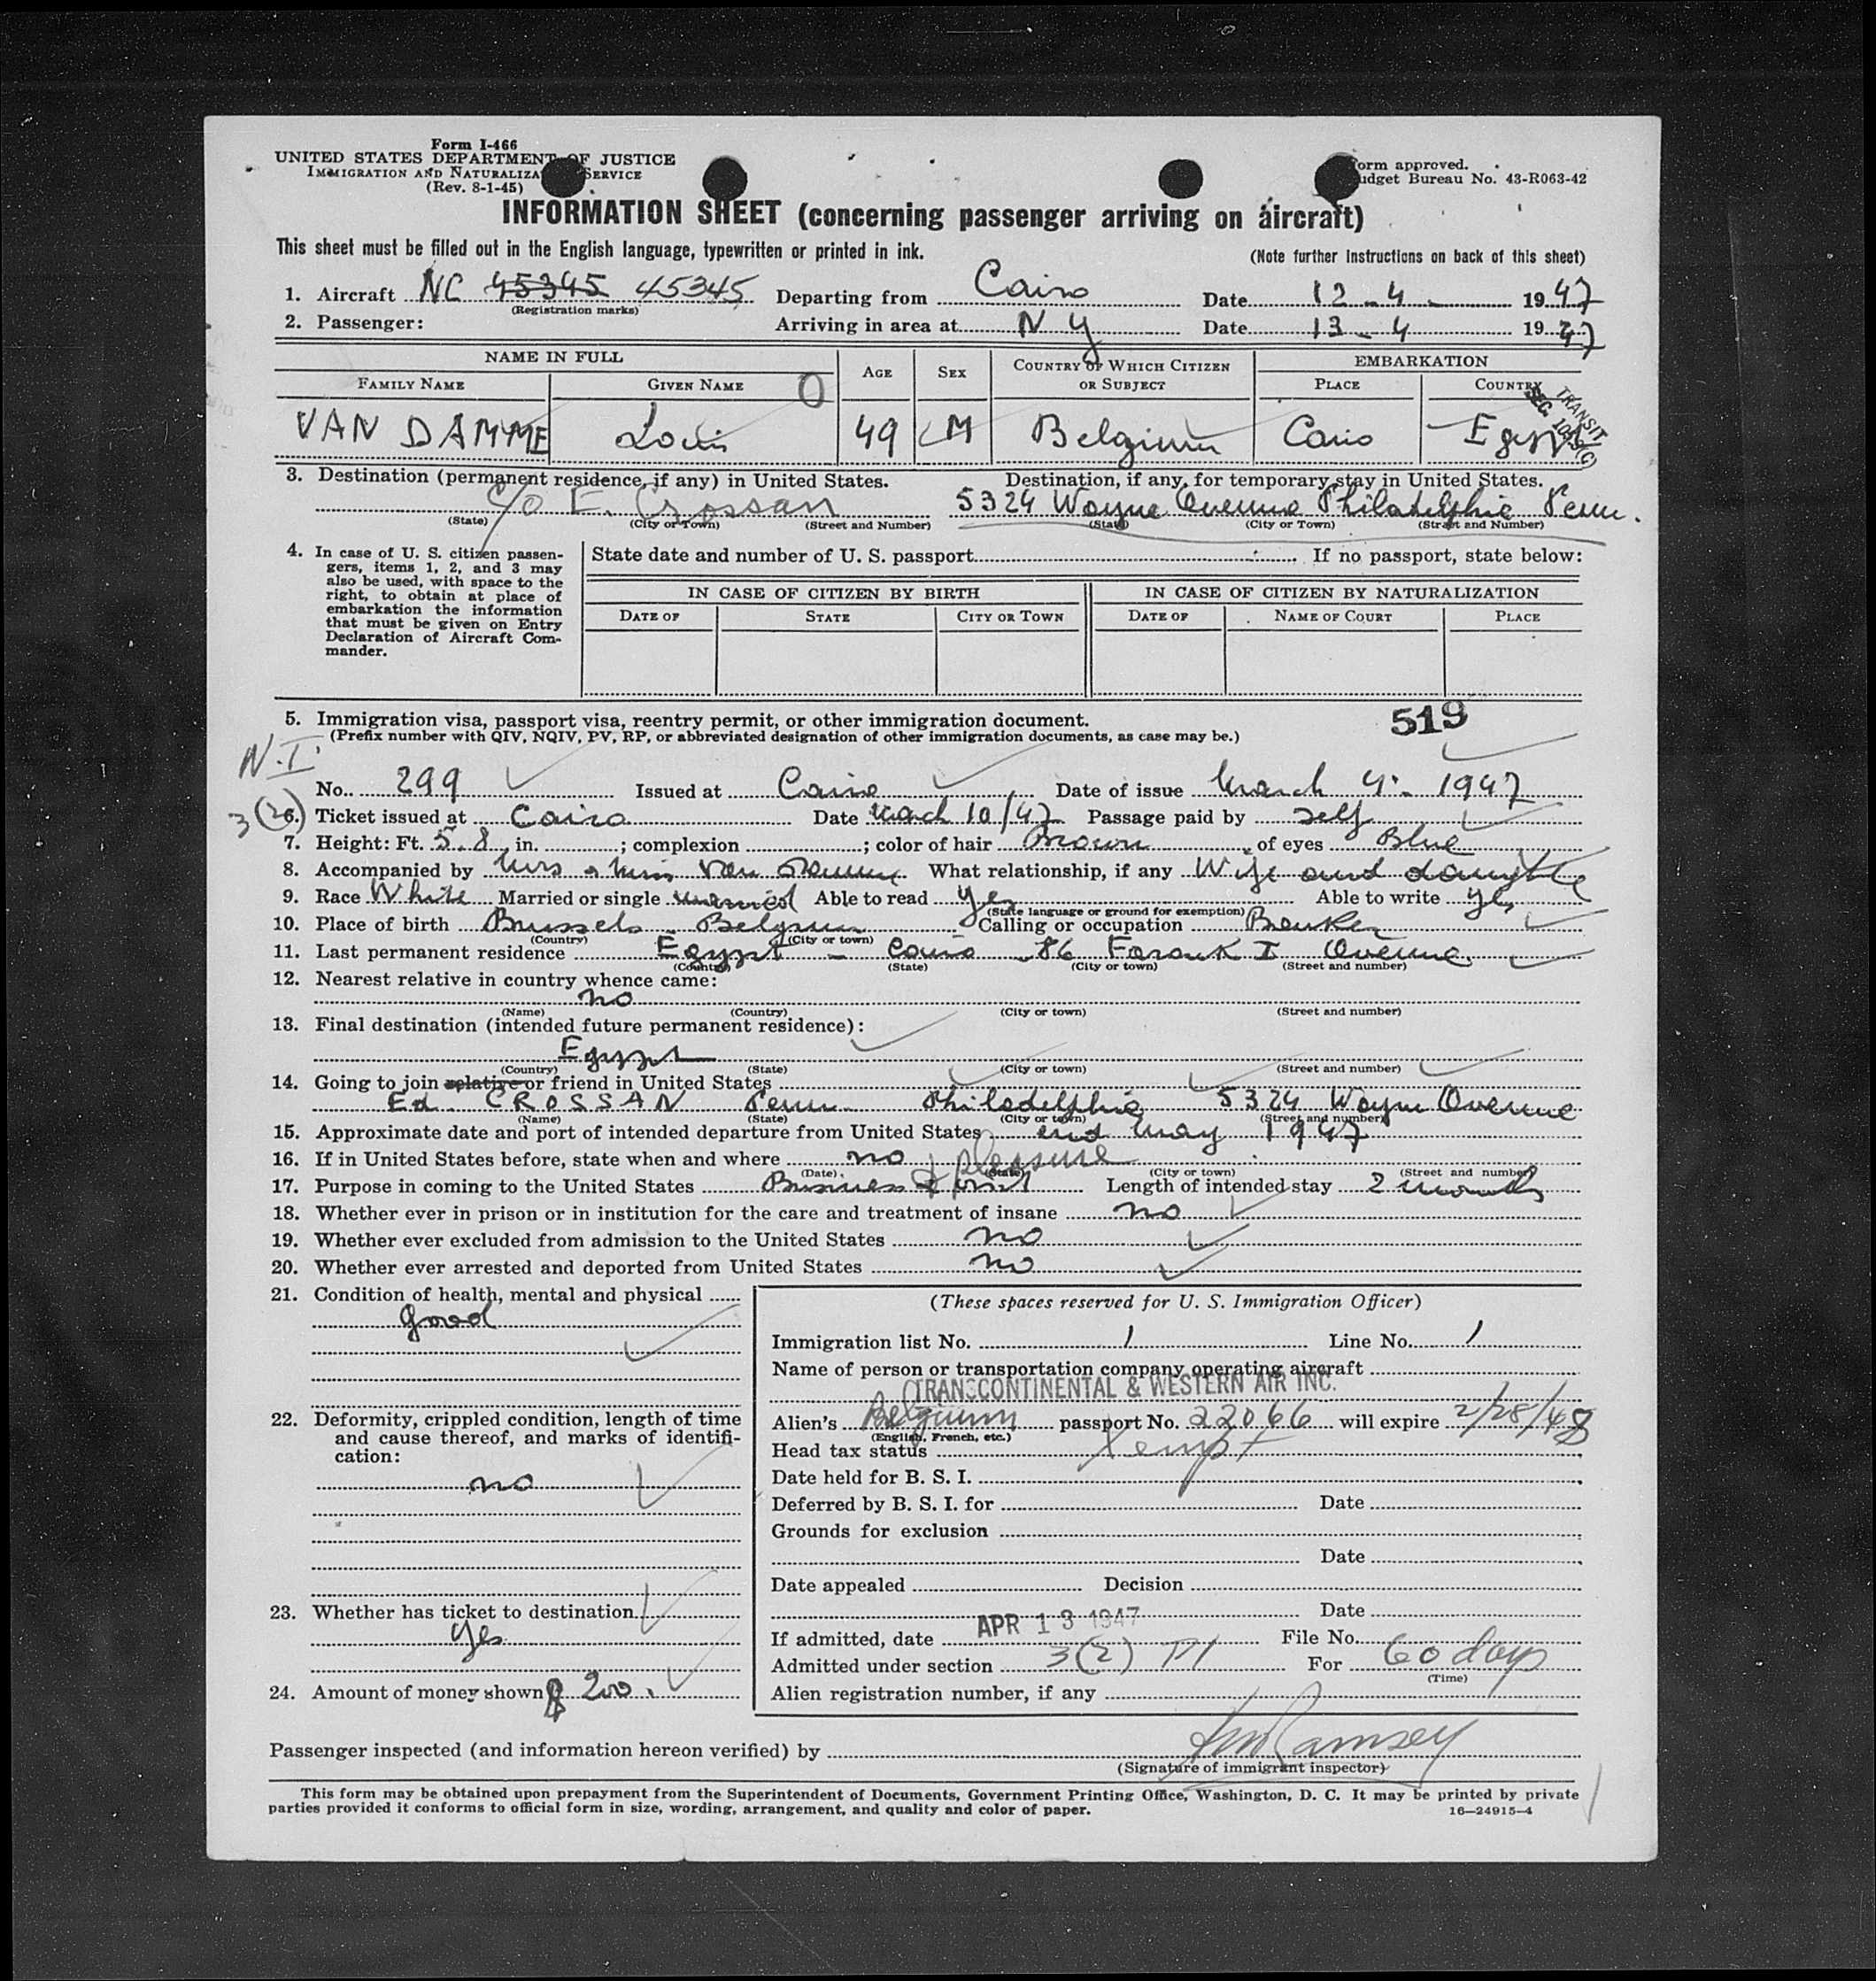 Form I-466
UNITED STATES DEPARTMENT OF JUSTICE
IMMIGRATION AND NATURALIZA SERVICE
(Rev. 8-1-45)
orm approved.
udget Bureau No. 43-R063-42
INFORMATION SHEET (concerning passenger arriving on aircraft)
This sheet must be filled out in the English language, typewritten or printed in ink. (Note further instructions on back of this sheet)
1. Aircraft NC 45345 45345 Departing from Cairo Date 12-4- 1947
(Registration marks)
2. Passenger: Arriving in area at N Y Date 13-4 1947
NAME IN FULL AGE SEX COUNTRY OF WHICH CITIZEN OR SUBJECT EMBARKATION
FAMILY NAME GIVEN NAME O PLACE COUNTRY
VAN DAMME Louis 49 M Belgium Cairo Egypt
TRANSIT
SEC.
3. Destination (permanent residence, if any) in United States. Destination, if any, for temporary stay in United States.
c/o E. Crossan 5324 Wayne Avenue Philadelphia Penn.
(State) (City or Town) (Street and Number) (State) (City or Town) (Street and Number)
4. In case of U. S. citizen passen-
gers, items 1, 2, and 3 may
also be used, with space to the
right, to obtain at place of
embarkation the information
that must be given on Entry
Declaration of Aircraft Com-
mander.
State date and number of U. S. passport If no passport, state below:
IN CASE OF CITIZEN BY BIRTH IN CASE OF CITIZEN BY NATURALIZATION
DATE OF STATE CITY OR TOWN DATE OF NAME OF COURT PLACE
5. Immigration visa, passport visa, reentry permit, or other immigration document. 519
(Prefix number with QIV, NQIV, PV, RP, or abbreviated designation of other immigration documents, as case may be.)
N.I.
No. 299 Issued at Cairo Date of issue March 4. 1947
3(2)
6. Ticket issued at Cairo Date March 10/47 Passage paid by self
7. Height: Ft. 5.8 in. ; complexion ; color of hair Brown of eyes Blue
8. Accompanied by Mrs & Miss Van Damme What relationship, if any Wife and daughter
9. Race White Married or single married Able to read yes Able to write yes
(State language or ground for exemption)
10. Place of birth Brussels - Belgium Calling or occupation Banker
(Country) (City or town)
11. Last permanent residence Egypt - Cairo - 86 Farouk I Avenue
(Country) (State) (City or town) (Street and number)
12. Nearest relative in country whence came:
no
(Name) (Country) (City or town) (Street and number)
13. Final destination (intended future permanent residence):
Egypt
(Country) (State) (City or town) (Street and number)
14. Going to join relative or friend in United States
Ed. CROSSAN Penn. Philadelphia 5324 Wayne Avenue
(Name) (State) (City or town) (Street and number)
15. Approximate date and port of intended departure from United States end May 1947
16. If in United States before, state when and where no
(Date) (State) (City or town) (Street and number)
& pleasure
17. Purpose in coming to the United States Business & visit Length of intended stay 2 months
18. Whether ever in prison or in institution for the care and treatment of insane no
19. Whether ever excluded from admission to the United States no
20. Whether ever arrested and deported from United States no
21. Condition of health, mental and physical
good
22. Deformity, crippled condition, length of time
and cause thereof, and marks of identifi-
cation:
no
23. Whether has ticket to destination
yes
24. Amount of money shown $ 200.
(These spaces reserved for U. S. Immigration Officer)
Immigration list No. 1 Line No. 1
Name of person or transportation company operating aircraft
TRANSCONTINENTAL & WESTERN AIR INC.
Alien's Belgium passport No. 22066 will expire 2/28/48
(English, French, etc.)
Head tax status Xempt
Date held for B. S. I.
Deferred by B. S. I. for Date
Grounds for exclusion
Date
Date appealed Decision
Date
If admitted, date APR 13 1947 File No.
Admitted under section 3(2) For 60 days
(Time)
Alien registration number, if any
Passenger inspected (and information hereon verified) by Ramsey
(Signature of immigrant inspector)
This form may be obtained upon prepayment from the Superintendent of Documents, Government Printing Office, Washington, D. C. It may be printed by private
parties provided it conforms to official form in size, wording, arrangement, and quality and color of paper. 16—24915-4